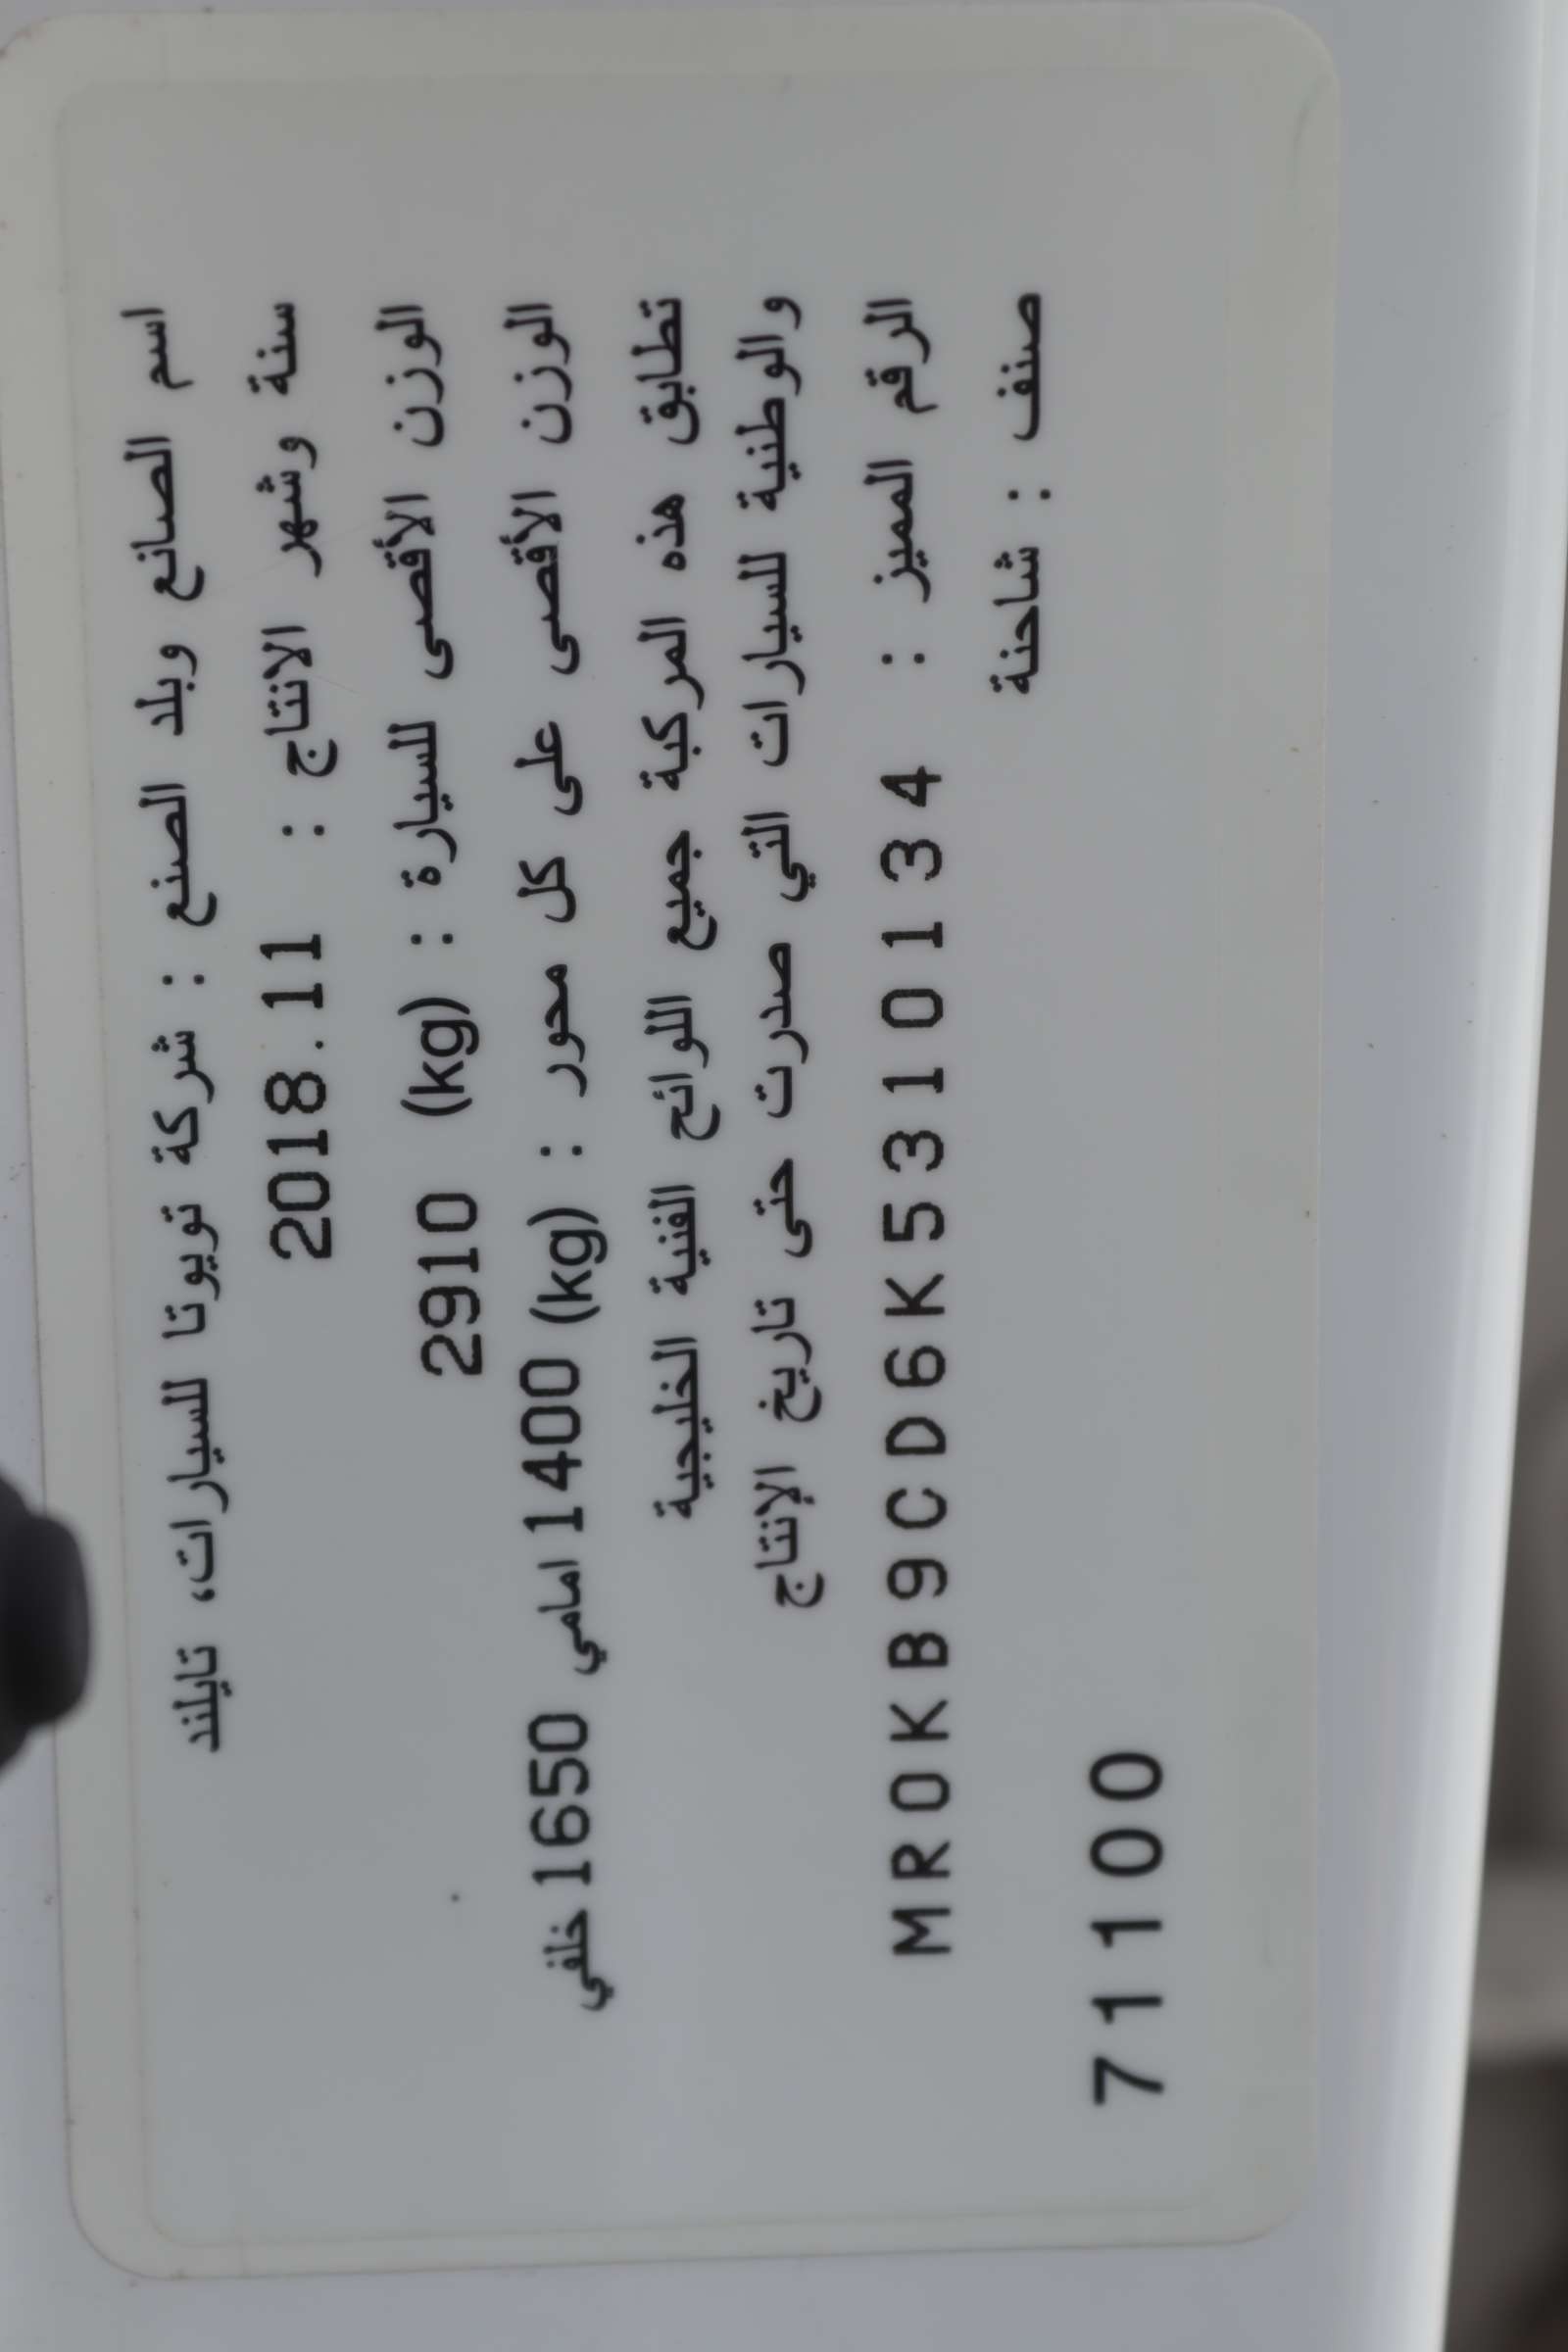 اسم الصانع وبلد الصنع : شركة تويوتا للسيارات، تايلند
سنة وشهر الانتاج : 2018.11
الوزن الأقصى للسيارة : (kg) 2910
الوزن الأقصى على كل محور : (kg) 1400 امامي 1650 خلفي
تطابق هذه المركبة جميع اللوائح الفنية الخليجية
والوطنية للسيارات التي صدرت حتى تاريخ الإنتاج
الرقم المميز : MR0KB9CD6K5310134
صنف : شاحنة
71100